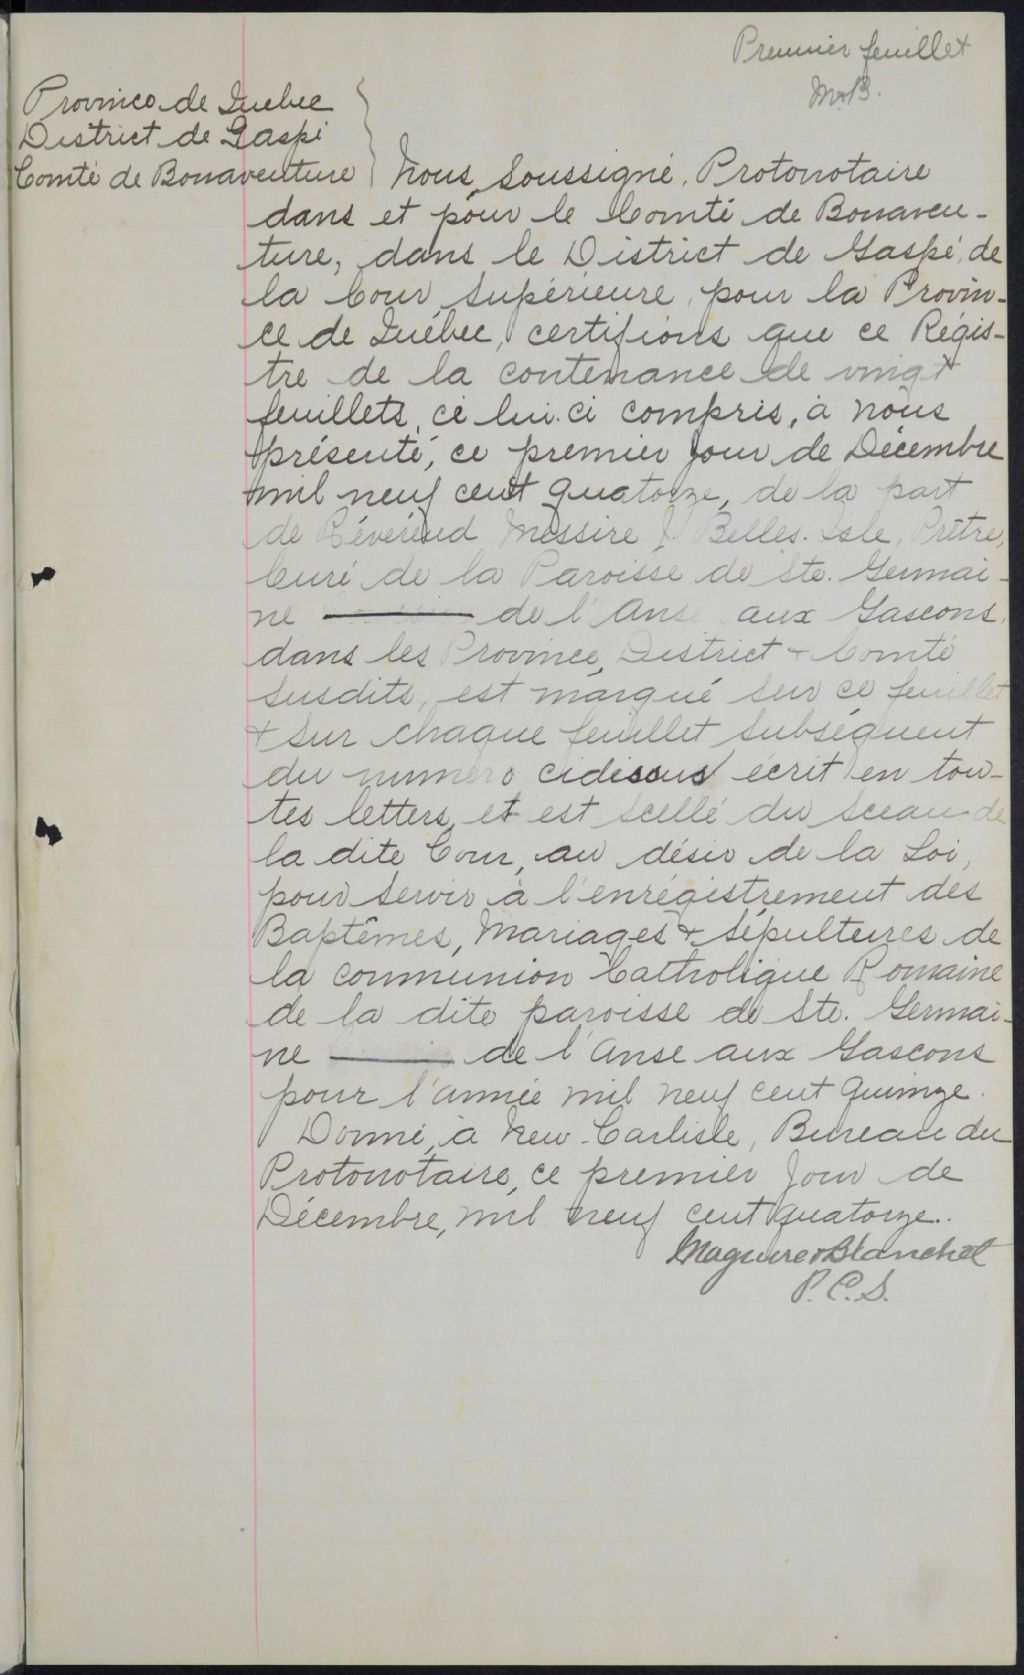 Premier feuillet
M&B.
Province de Quebec
District de Gaspé
Comté de Bonaventure } Nous, Soussigné, Protonotaire
dans et pour le Comté de Bonaven-
ture, dans le District de Gaspé, de
la Cour Supérieure, pour la Provin-
ce de Québec, certifions que ce Régis-
tre de la contenance de vingt
feuillets, ce lui-ci compris, à nous
présenté, ce premier jour de Décembre
mil neuf cent quatorze, de la part
de Révérend Messire J. Belles-Isle, Prêtre,
Curé de la Paroisse de Ste. Germai-
ne ——— de l'Anse aux Gascons,
dans les Province, District & Comté
susdits, est marqué sur ce feuillet
& sur chaque feuillet subséquent
du numero cidessus écrit en tou-
tes letters, et est scellé du sceau de
la dite Cour, au désir de la Loi,
pour servir à l'enrégistrement des
Baptêmes, Mariages & Sépultures de
la communion Catholique Romaine
de la dite paroisse de Ste. Germai-
ne ——— de l'Anse aux Gascons
pour l'année mil neuf cent quinze.
Donné, à New-Carlisle, Bureau du
Protonotaire, ce premier jour de
Décembre, mil neuf cent quatorze..
Maguire & Blanchet
P.C.S.